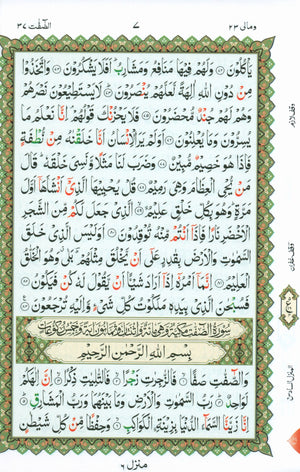 ومالی ۲۳ ۷ الصّٰفّٰت ۳۷
يَاْكُلُوْنَ ۝ وَلَهُمْ فِيْهَا مَنَافِعُ وَمَشَارِبُ ؕ اَفَلَا يَشْكُرُوْنَ ۝ وَاتَّخَذُوْا
مِنْ دُوْنِ اللّٰهِ اٰلِهَةً لَّعَلَّهُمْ يُنْصَرُوْنَ ۝ لَا يَسْتَطِيْعُوْنَ نَصْرَهُمْ
وَهُمْ لَهُمْ جُنْدٌ مُّحْضَرُوْنَ ۝ فَلَا يَحْزُنْكَ قَوْلُهُمْ ۘ اِنَّا نَعْلَمُ مَا
يُسِرُّوْنَ وَمَا يُعْلِنُوْنَ ۝ اَوَلَمْ يَرَ الْاِنْسَانُ اَنَّا خَلَقْنٰهُ مِنْ نُّطْفَةٍ
فَاِذَا هُوَ خَصِيْمٌ مُّبِيْنٌ ۝ وَضَرَبَ لَنَا مَثَلًا وَّنَسِيَ خَلْقَهٗ ؕ قَالَ
مَنْ يُّحْيِ الْعِظَامَ وَهِيَ رَمِيْمٌ ۝ قُلْ يُحْيِيْهَا الَّذِيْٓ اَنْشَاَهَآ اَوَّلَ
مَرَّةٍ ؕ وَهُوَ بِكُلِّ خَلْقٍ عَلِيْمُۨ ۝ الَّذِيْ جَعَلَ لَكُمْ مِّنَ الشَّجَرِ
الْاَخْضَرِ نَارًا فَاِذَآ اَنْتُمْ مِّنْهُ تُوْقِدُوْنَ ۝ اَوَلَيْسَ الَّذِيْ خَلَقَ
السَّمٰوٰتِ وَالْاَرْضَ بِقٰدِرٍ عَلٰٓى اَنْ يَّخْلُقَ مِثْلَهُمْ ؕ بَلٰى ۗ وَهُوَ الْخَلّٰقُ
الْعَلِيْمُ ۝ اِنَّمَآ اَمْرُهٗٓ اِذَآ اَرَادَ شَيْـًٔا اَنْ يَّقُوْلَ لَهٗ كُنْ فَيَكُوْنُ ۝
فَسُبْحٰنَ الَّذِيْ بِيَدِهٖ مَلَكُوْتُ كُلِّ شَيْءٍ وَّاِلَيْهِ تُرْجَعُوْنَ ۝
بِسْمِ اللّٰهِ الرَّحْمٰنِ الرَّحِيْمِ
وَالصّٰٓفّٰتِ صَفًّا ۝ فَالزّٰجِرٰتِ زَجْرًا ۝ فَالتّٰلِيٰتِ ذِكْرًا ۝ اِنَّ اِلٰهَكُمْ
لَوَاحِدٌ ۝ رَبُّ السَّمٰوٰتِ وَالْاَرْضِ وَمَا بَيْنَهُمَا وَرَبُّ الْمَشَارِقِ ۝
اِنَّا زَيَّنَّا السَّمَآءَ الدُّنْيَا بِزِيْنَةِ ۨالْكَوَاكِبِ ۝ وَحِفْظًا مِّنْ كُلِّ شَيْطٰنٍ
منزل ۶